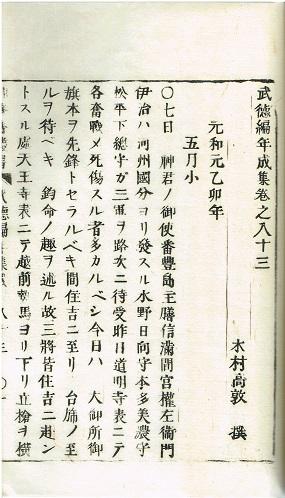 武徳編年成集巻之八十三
木村高敦 撰
元和元乙卯年
五月小
〇七日 神君ノ御使番豊島主膳信満間宮權左衞門
伊治ハ河州國分ヨリ發スル水野日向守本多美濃守
松平下總守ガ三軍ヲ路次ニ待受昨日道明寺表ニテ
各奮戰メ死傷スル者多カルベシ今日ハ 大御所御
旗本ヲ先鋒トセラルベキ間住吉ニ至リ 台旆ノ至
ルヲ待ベキ 鈞命ノ趣ヲ述ル故三將皆住吉ニ赴ン
トスル處天王寺表ニテ越前勢馬ヨリ下リ立槍ヲ横